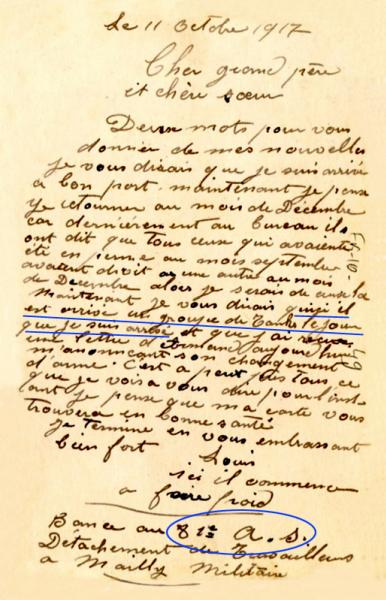 Le 11 Octobre 1917
Cher grand père
et chère sœur
Deux mots pour vous
donner de mes nouvelles
je vous dirais que je suis arrivé
a bon port. maintenant je pense
y retourner au mois de Décembre
car dernièrement au bureau ils
ont dit que tous ceux qui avaient
été en perme au mois septembre
avaient droit a une autre au mois
de Decembre alors je serais de ceux la
Maintenant je vous dirais qu'ici il
est arrivé un groupe de Tanks le jour
que je suis arrivé et que j'ai
une lettre d'Armand aujourd'hui
m'anonncant son changement
d'arme. C'est a peut près tous ce
que je vois a vous dire pour l'inst
ant je pense que ma carte vous
trouvera en bonne santé
je termine en vous embrassant
bien fort Louis
ici il commence
a faire froid
Bance au 81e A.S.
Détachement de Travailleurs
a Mailly Militaire